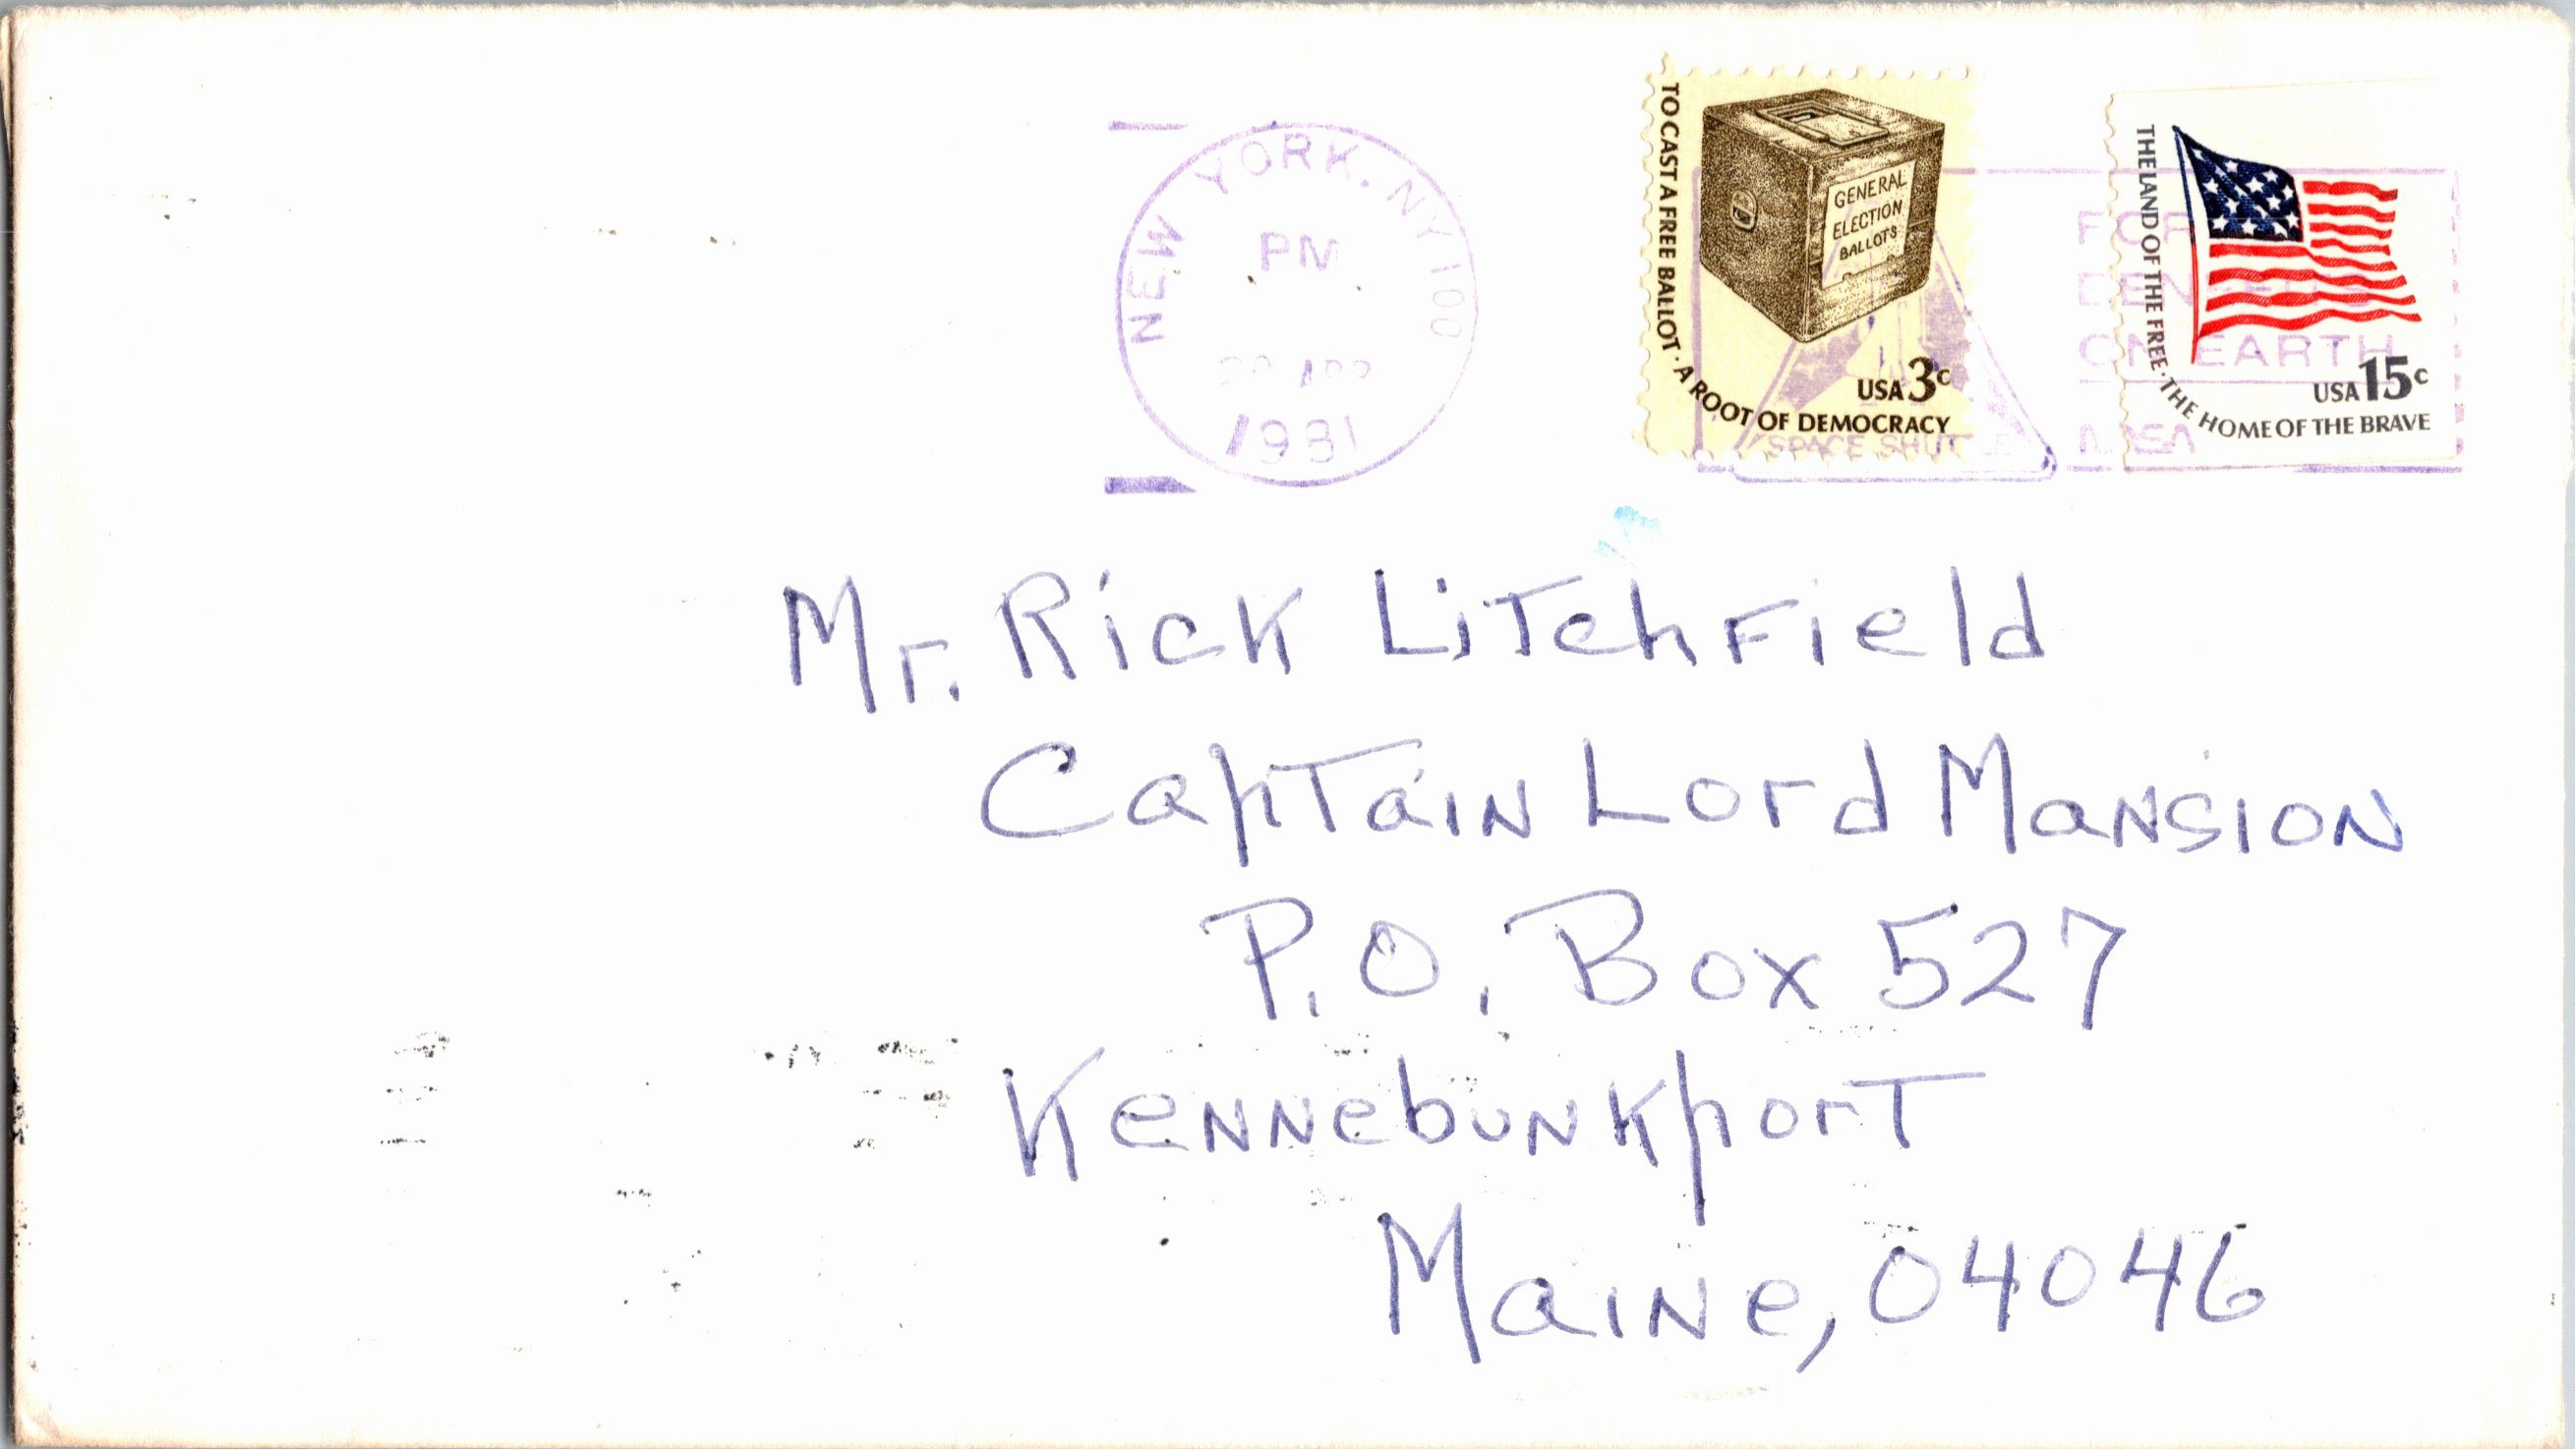 NEW YORK, NY 100
PM
1981
TO CAST A FREE BALLOT · A ROOT OF DEMOCRACY
GENERAL
ELECTION
BALLOTS
USA 3c
SPACE SHUTTLE
THE LAND OF THE FREE · THE HOME OF THE BRAVE
USA 15c
ON EARTH
NASA
Mr. Rick Litchfield
Captain Lord Mansion
P.O. Box 527
Kennebunkport
Maine, 04046